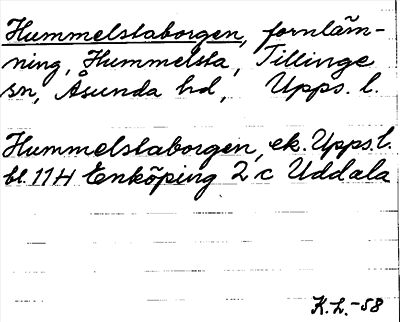 Hummelstaborgen, fornläm-
ning, Hummelsta, Tillinge
sn, Åsunda hd, Upps. l.
Hummelstaborgen, ek. Upps. l.
bl. 114 Enköping 2 c Uddala
K.L.-58